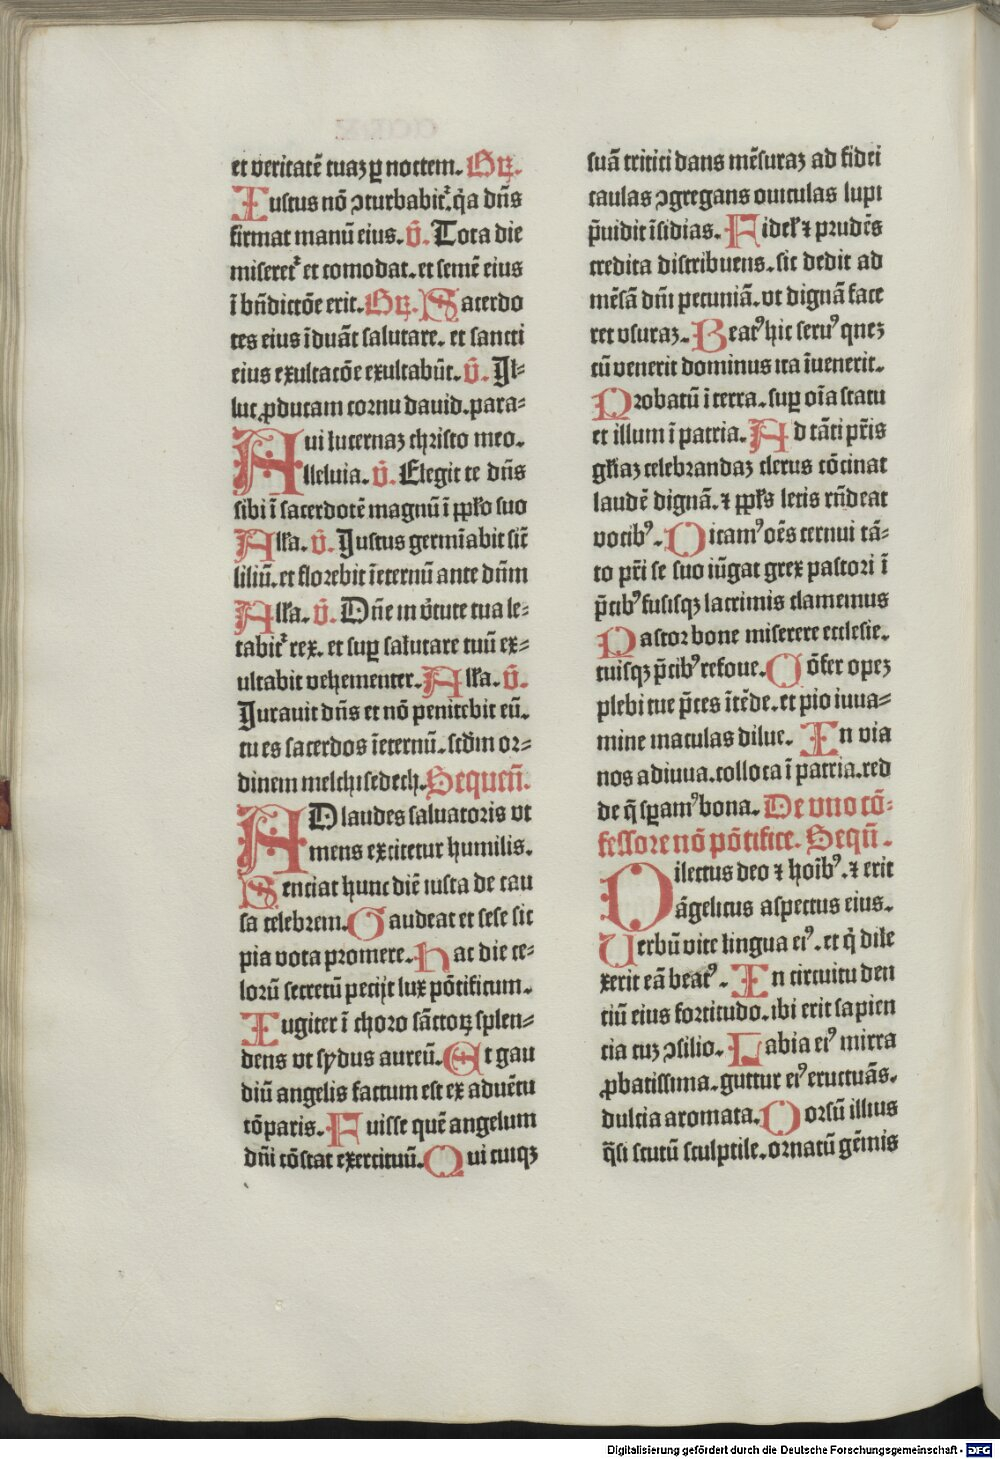 et veritatē tuaꝫ ꝑ noctem. Gꝝ.
Iustus nō ꝯturbabit᷑. q̇a dn̄s
firmat manū eius. v̄. Tota die
miseret᷑ et comodat. et semē eius
ī bn̄dictōe erit. Gꝝ. Sacerdo
tes eius īduāt salutare. et sancti
eius exultacōe exultabūt. v̄. Il⸗
luc ꝓducam cornu dauid. para⸗
ui lucernaꝫ christo meo.
Alleluia. v̄. Elegit te dn̄s
sibi ī sacerdotē magnū ī pp̄lo suo
Alľa. v̄. Justus germīabit sic̄
liliū. et florebit īeternū ante dn̄m
Alľa. v̄. Dn̄e in v̄tute tua le⸗
tabit᷑ rex. et suꝑ salutare tuū ex⸗
ultabit vehementer. Alľa. v̄.
Jurauit dn̄s et nō penitebit eū.
tu es sacerdos īeternū. scd̄m or⸗
dinem melchisedech. Sequen̄.
AD laudes saluatoris vt
mens excitetur humilis.
Senciat hunc diē iusta de cau
sa celebrem. Gaudeat et sese sic
pia vota promere. Hac die ce⸗
lorū secretū pecijt lux pōtificum.
Iugiter ī choro sāctoꝝ splen⸗
dens vt sydus aureū. Et gau
diū angelis factum est ex aduētu
cōparis. Fuisse quē angelum
dn̄i cōstat exercituū. Qui cuiqꝫ
suā tritici dans mēsuraꝫ ad fidei
caulas ꝯgregans ouiculas lupi
p̄uidit īsidias. Fideľ ⁊ prudēs
credita distribuens. sic dedit ad
mēsā dn̄i pecuniā. vt dignā face
ret vsuraꝫ. Beatꝰ hic seruꝰ qneꝫ
cū venerit dominus ita īuenerit.
Probatū ī terra. suꝑ oīa statu
et illum ī patria. Ad tāti pr̄is
gľiaꝫ celebrandaꝫ clerus cōcinat
laudē dignā. ⁊ pp̄ľs letis rn̄deat
vocibꝰ. Oitamꝰ oēs cernui tā⸗
to pr̄i se suo iūgat grex pastori ī
p̄cibꝰ fusisqꝫ lacrimis clamemus
Pastor bone miserere ecclesie.
tuisqꝫ p̄cibꝰ refoue. Cōfer opeꝫ
plebi tue p̄ces ītēde. et pio iuua⸗
mine maculas dilue. In via
nos adiuua. colloca ī patria. red
de q̄ sꝑamꝰ bona. De vno cō⸗
fessore nō pōtifice. Sequn̄.
Dilectus deo ⁊ hoībꝰ. ⁊ erit
āgelicus aspectus eius.
Uerbū vite lingua eiꝰ. et q̇ dile
xerit eā beatꝰ. In circuitu den
tiū eius fortitudo. ibi erit sapien
cia cuꝫ ꝯsilio. Labia eiꝰ mirra
ꝓbatissima. guttur eiꝰ eructuās.
dulcia aromata. Corsū illius
q̄si scutū sculptile. ornatū gēmis
Digitalisierung gefördert durch die Deutsche Forschungsgemeinschaft - DFG